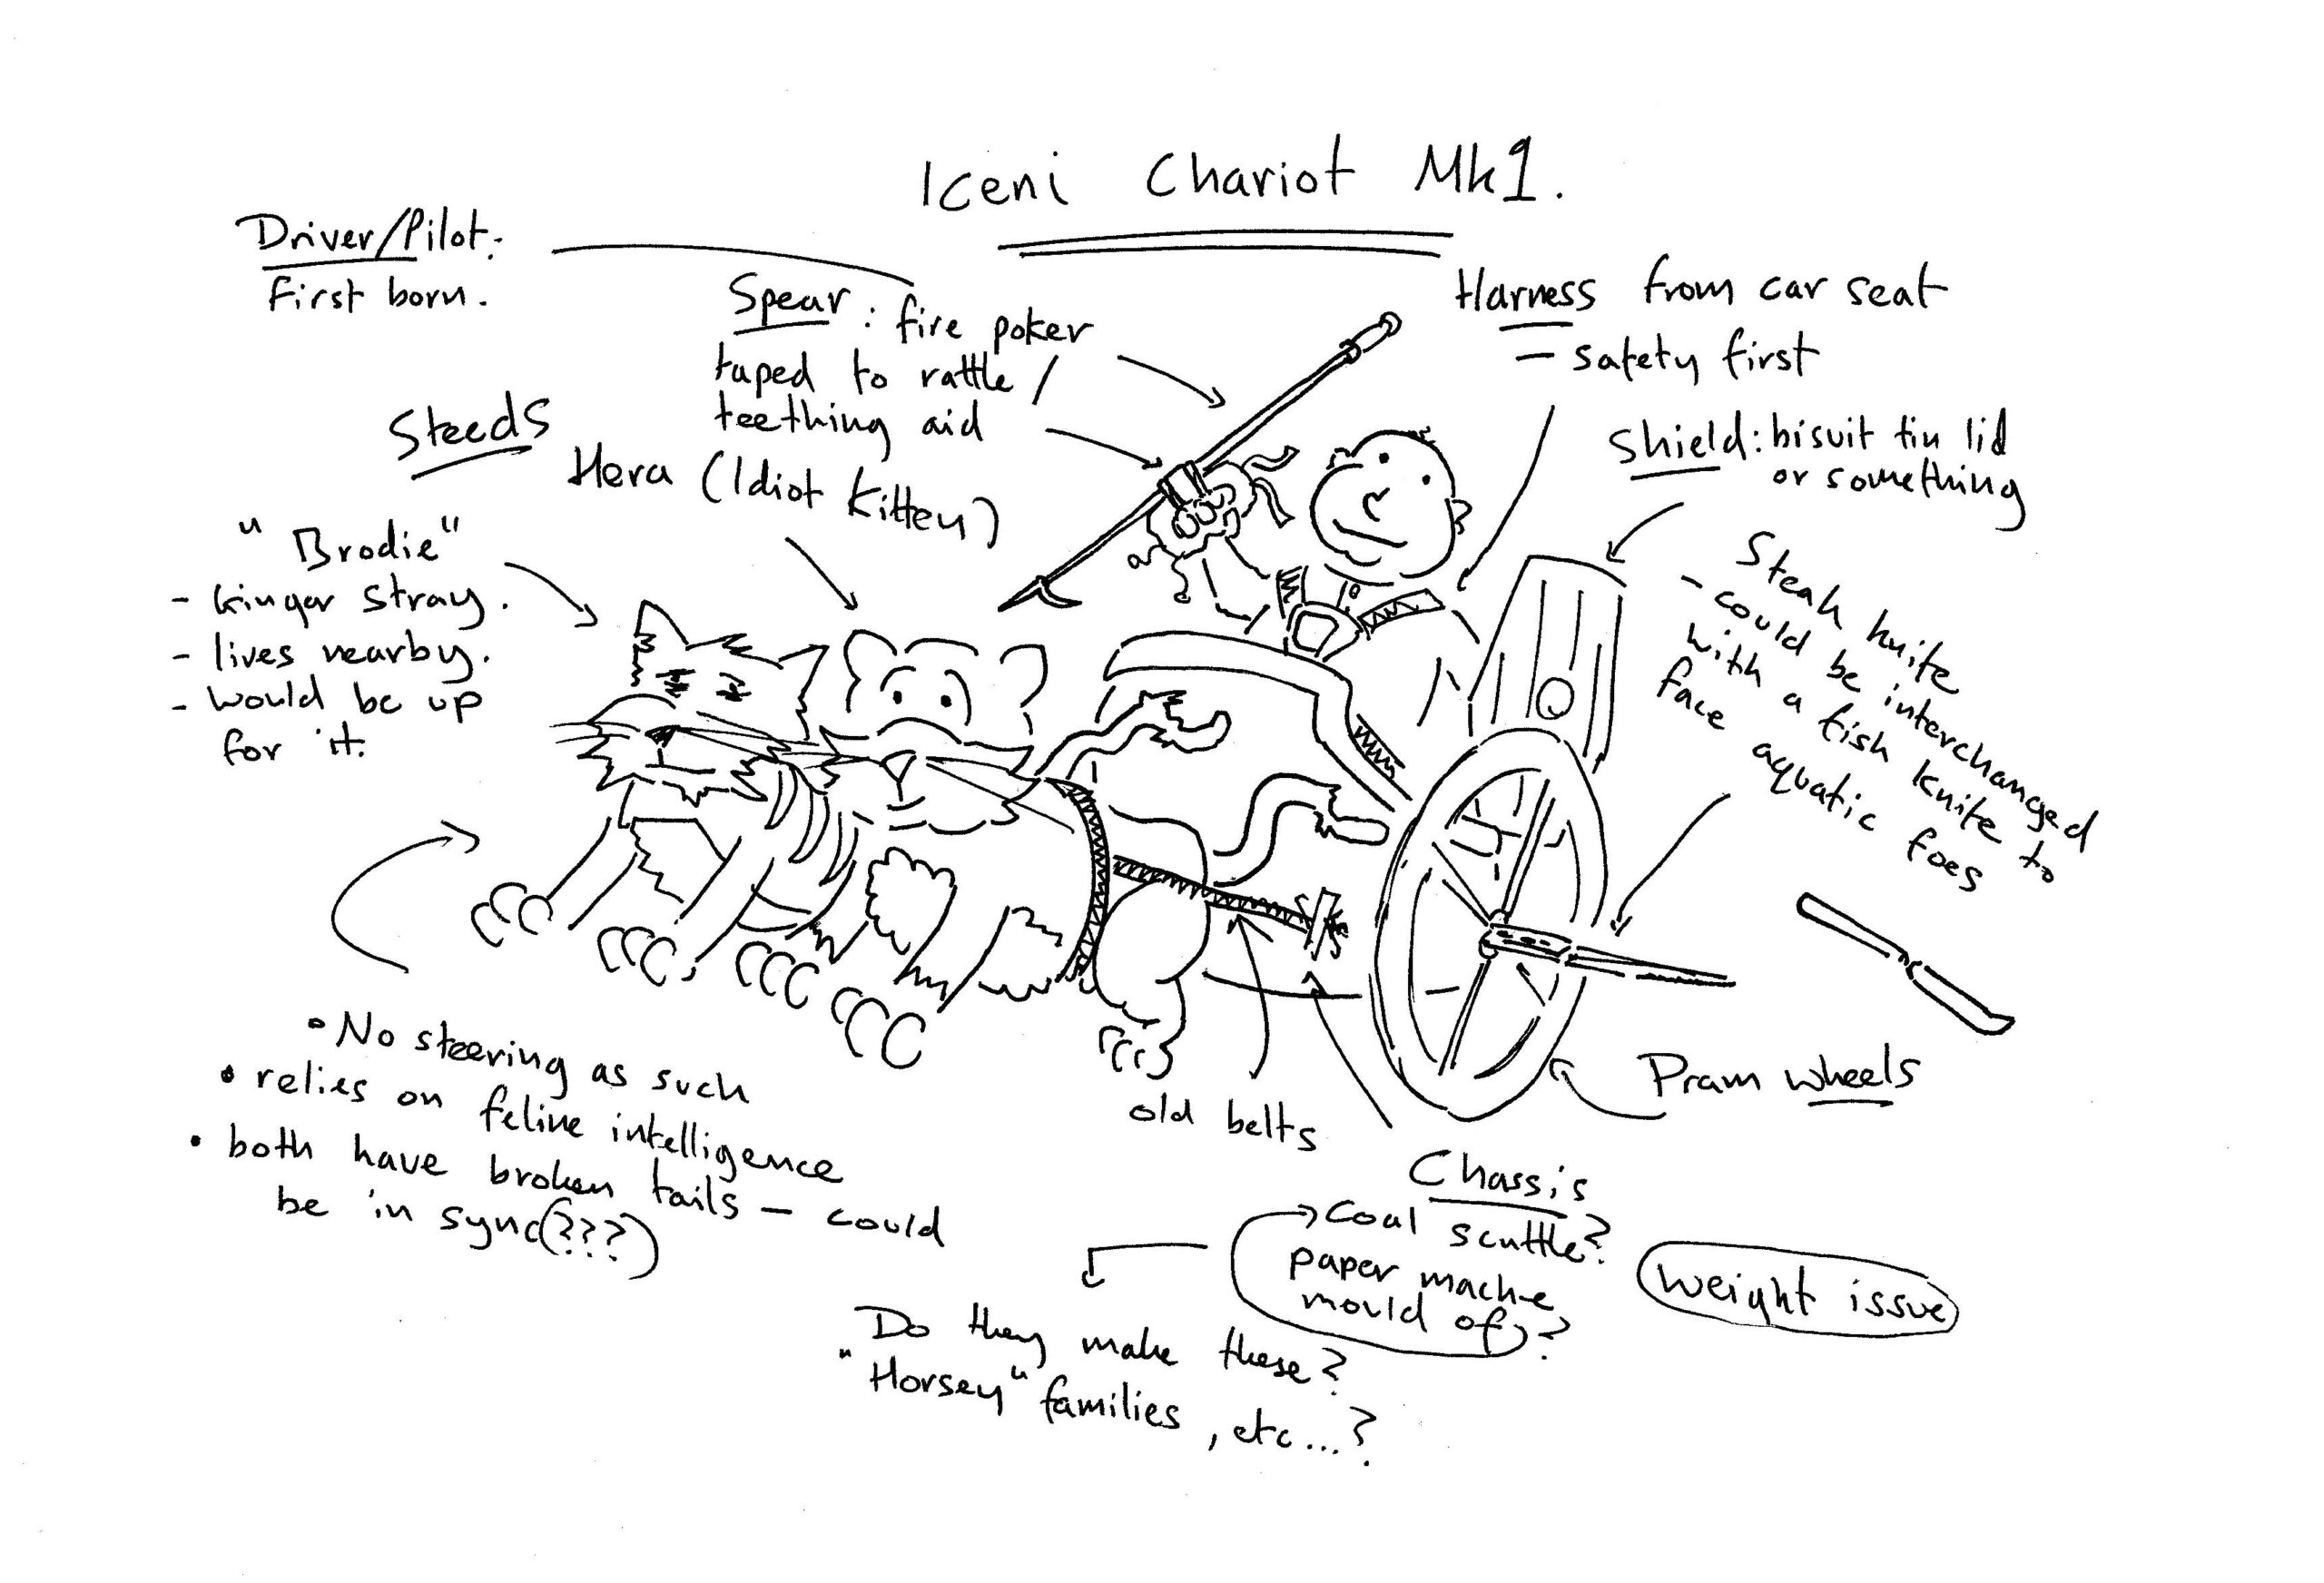 Iceni Chariot Mk1.
Driver/Pilot:
First born.
Spear: fire poker
taped to rattle /
teething aid
Harness from car seat
– safety first
Shield: bisuit tin lid
or something
Steeds
Hera (Idiot Kitten)
"Brodie"
- Ginger stray.
- lives nearby.
- would be up
for it.
Steak knife
- could be interchanged
with a fish knife to
face aquatic foes
• No steering as such
• relies on feline intelligence
• both have broken tails – could
be in sync(???)
old belts
Pram wheels
Chassis
Coal scuttle?
paper mache
mould of?
weight issue
Do they make these?
"Horsey" families, etc...?